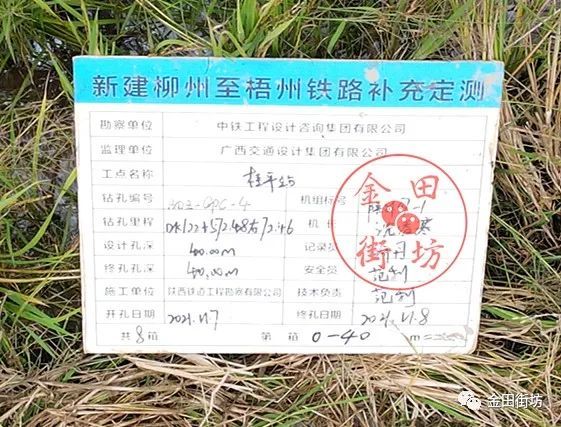 新建柳州至梧州铁路补充定测
勘察单位 中铁工程设计咨询集团有限公司
监理单位 广西交通设计集团有限公司
工点名称 桂平站
钻孔编号 机组标号
钻孔里程 机长
设计孔深 40.00m 记录员
终孔孔深 40.00m 安全员 范利
施工单位 陕西铁道工程勘察有限公司 技术负责 范利
开孔日期 2021.11.7 终孔日期 2021.11.8
共8箱 第 箱 0-40 m
金田
街坊
金田街坊